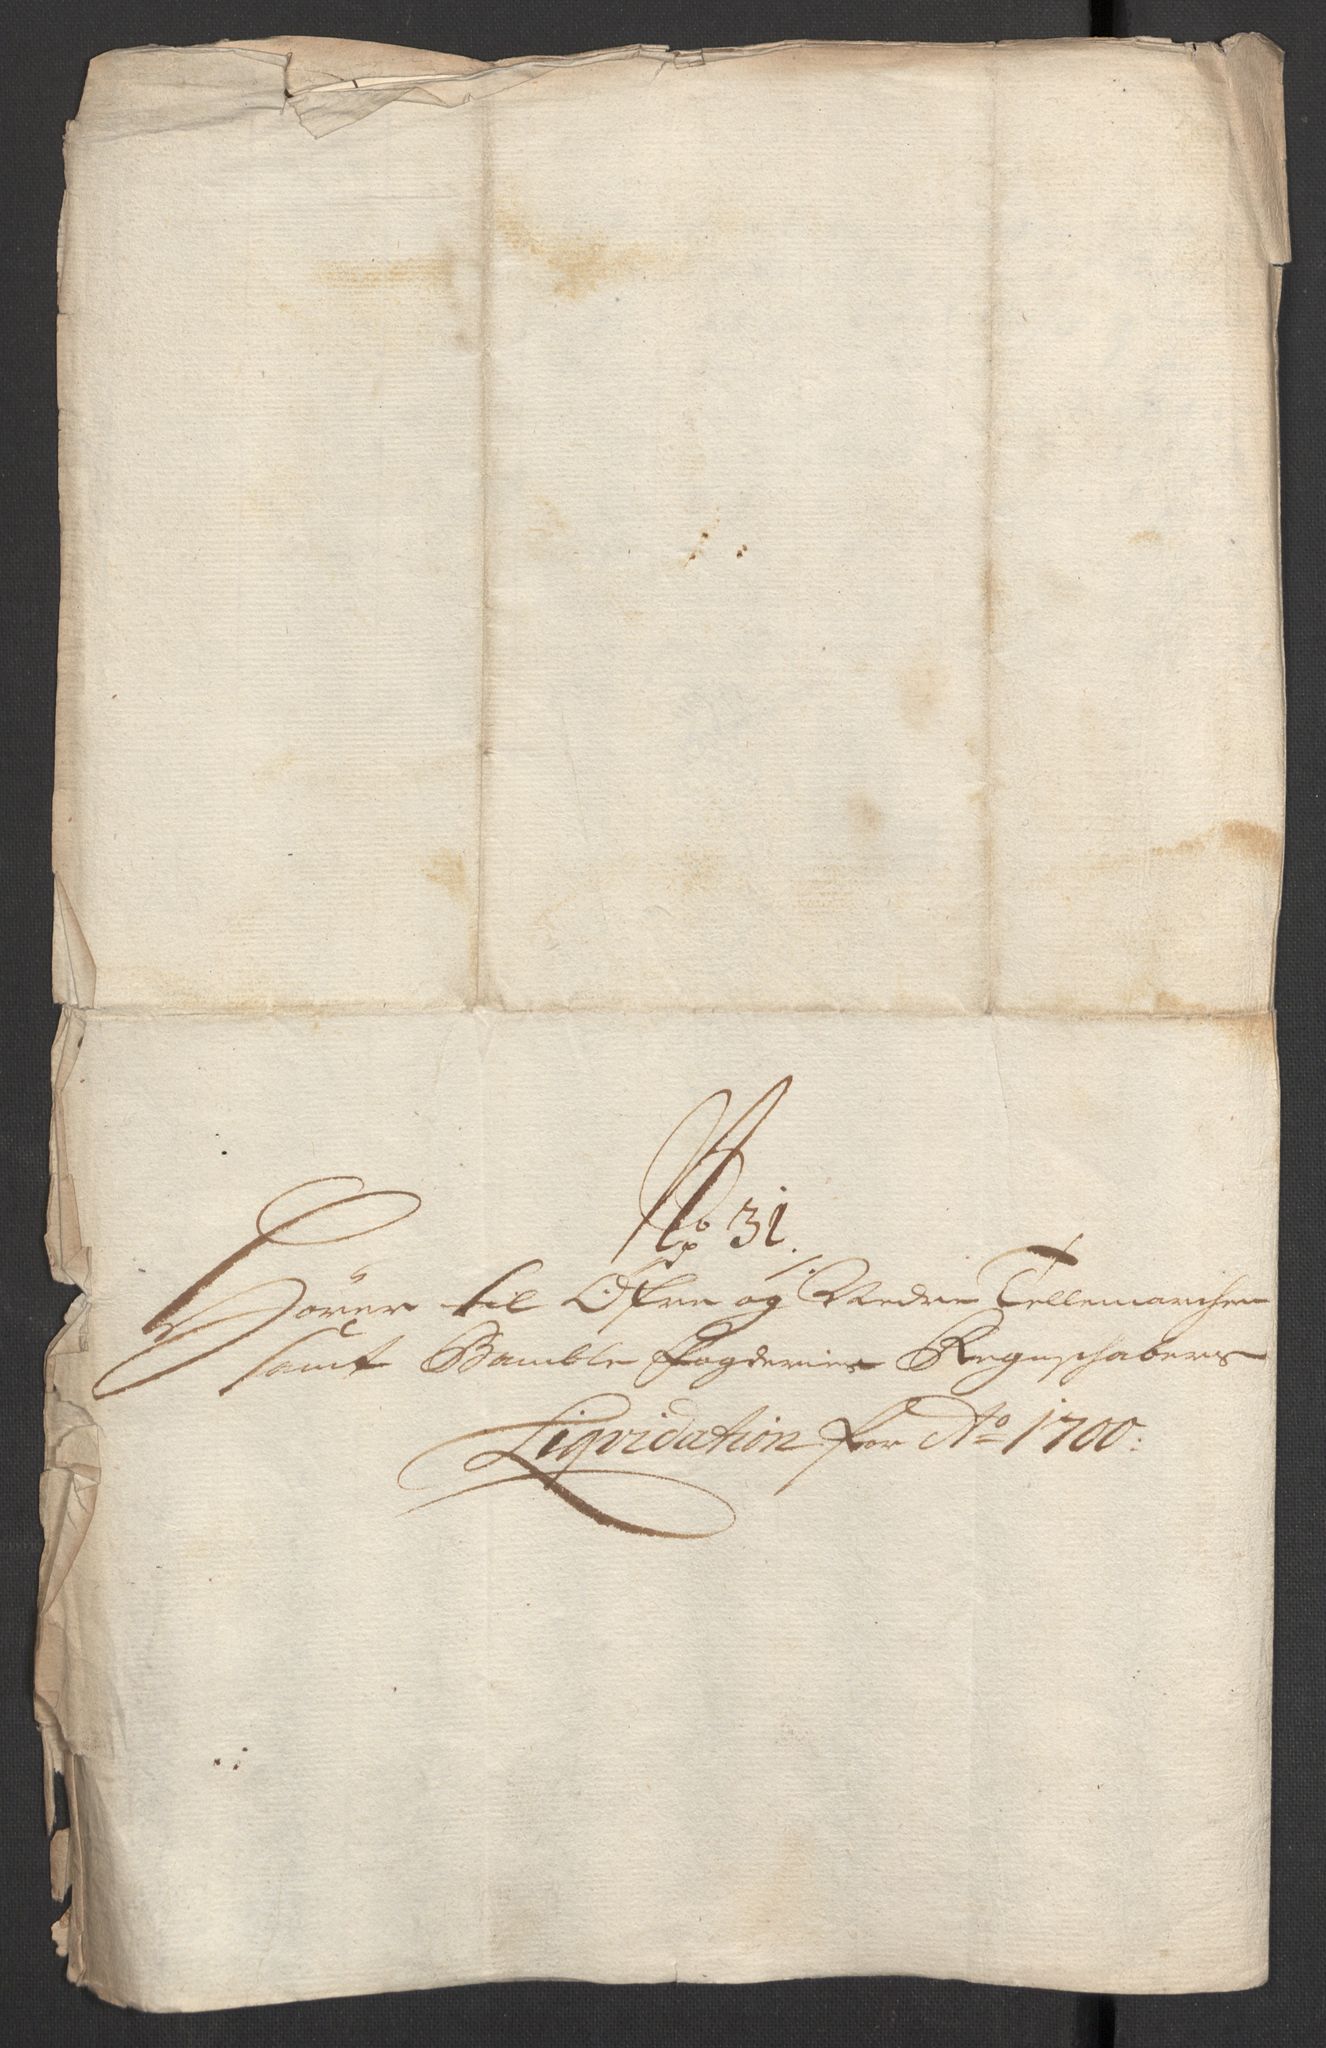 No 31.
Hörer til Öfre og Nedre Tellemarchen
samt Bamble fogderies Regnschabers
Liqvidation for Ao 1700: